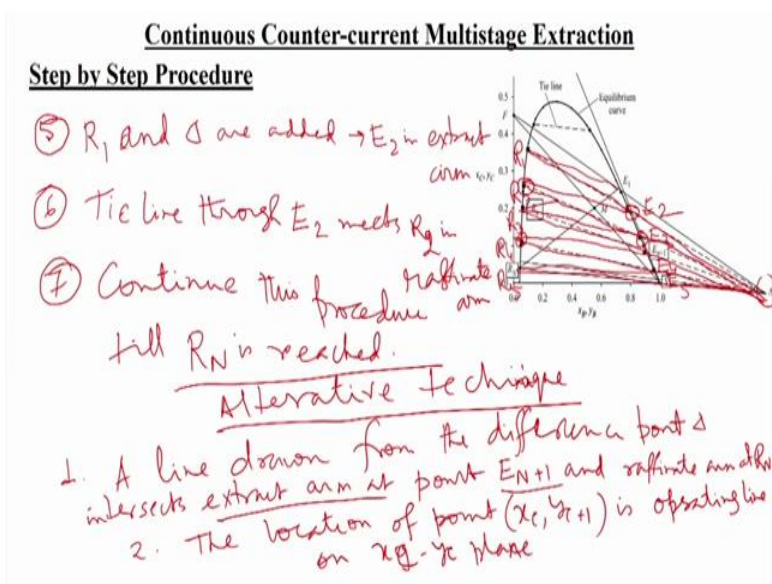 Continuous Counter-current Multistage Extraction
Step by Step Procedure
⑤ R₁ and Δ are added → E₂ in extract
arm
⑥ Tie line through E₂ meets R₂ in
raffinate
arm
⑦ Continue this
procedure
till R_N is reached.
Alterative Technique
1. A line drawn from the difference point Δ
intersects extract arm at point E_N+1 and raffinate arm at R_N
2. The location of point (x_c, y_c+1) is operating line
on x_c-y_c plane
Tie line
Equilibrium
curve
0.5
F
0.4
0.3
0.2
0.2 0.4 0.6 0.8 1.0
E₁
M
E₂
S